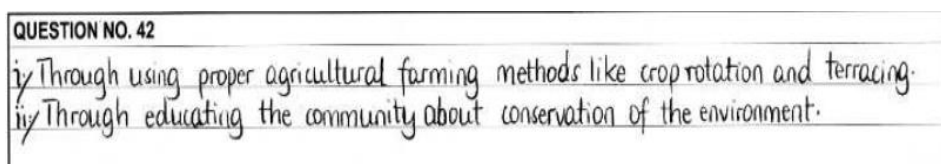 QUESTION NO. 42
i/ Through using proper agricultural farming methods like crop rotation and terracing.
ii/ Through educating the community about conservation of the environment.